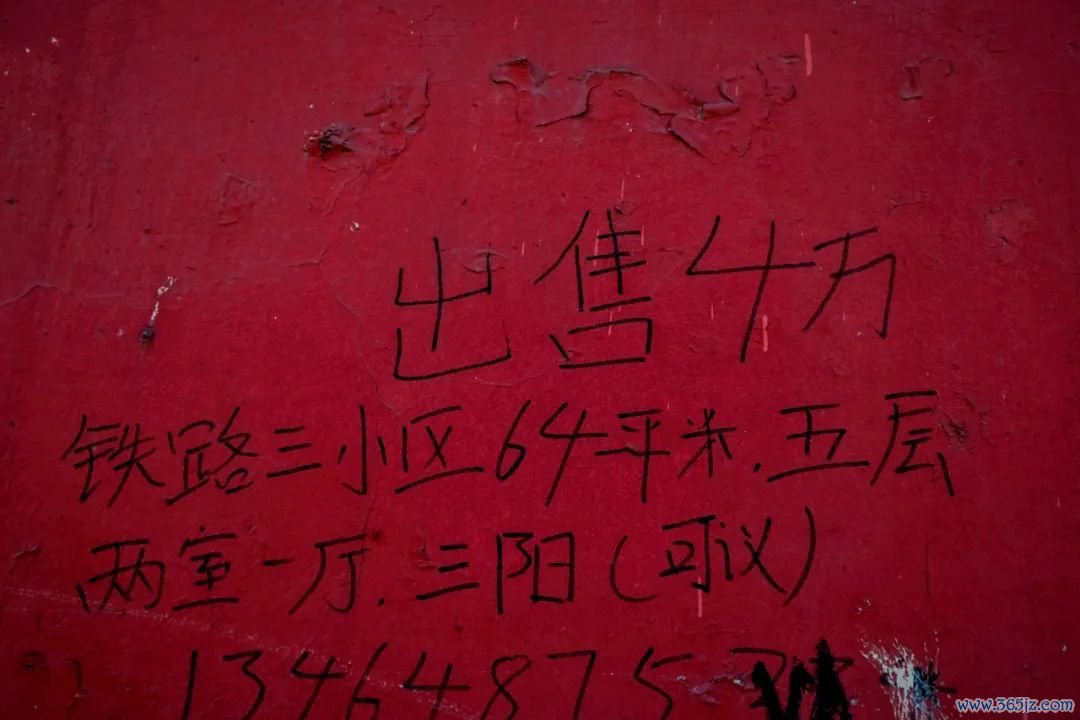 出售4万
铁路三小区64平米.五层
两室一厅.三阳(可议)
134648757
www.365jz.com